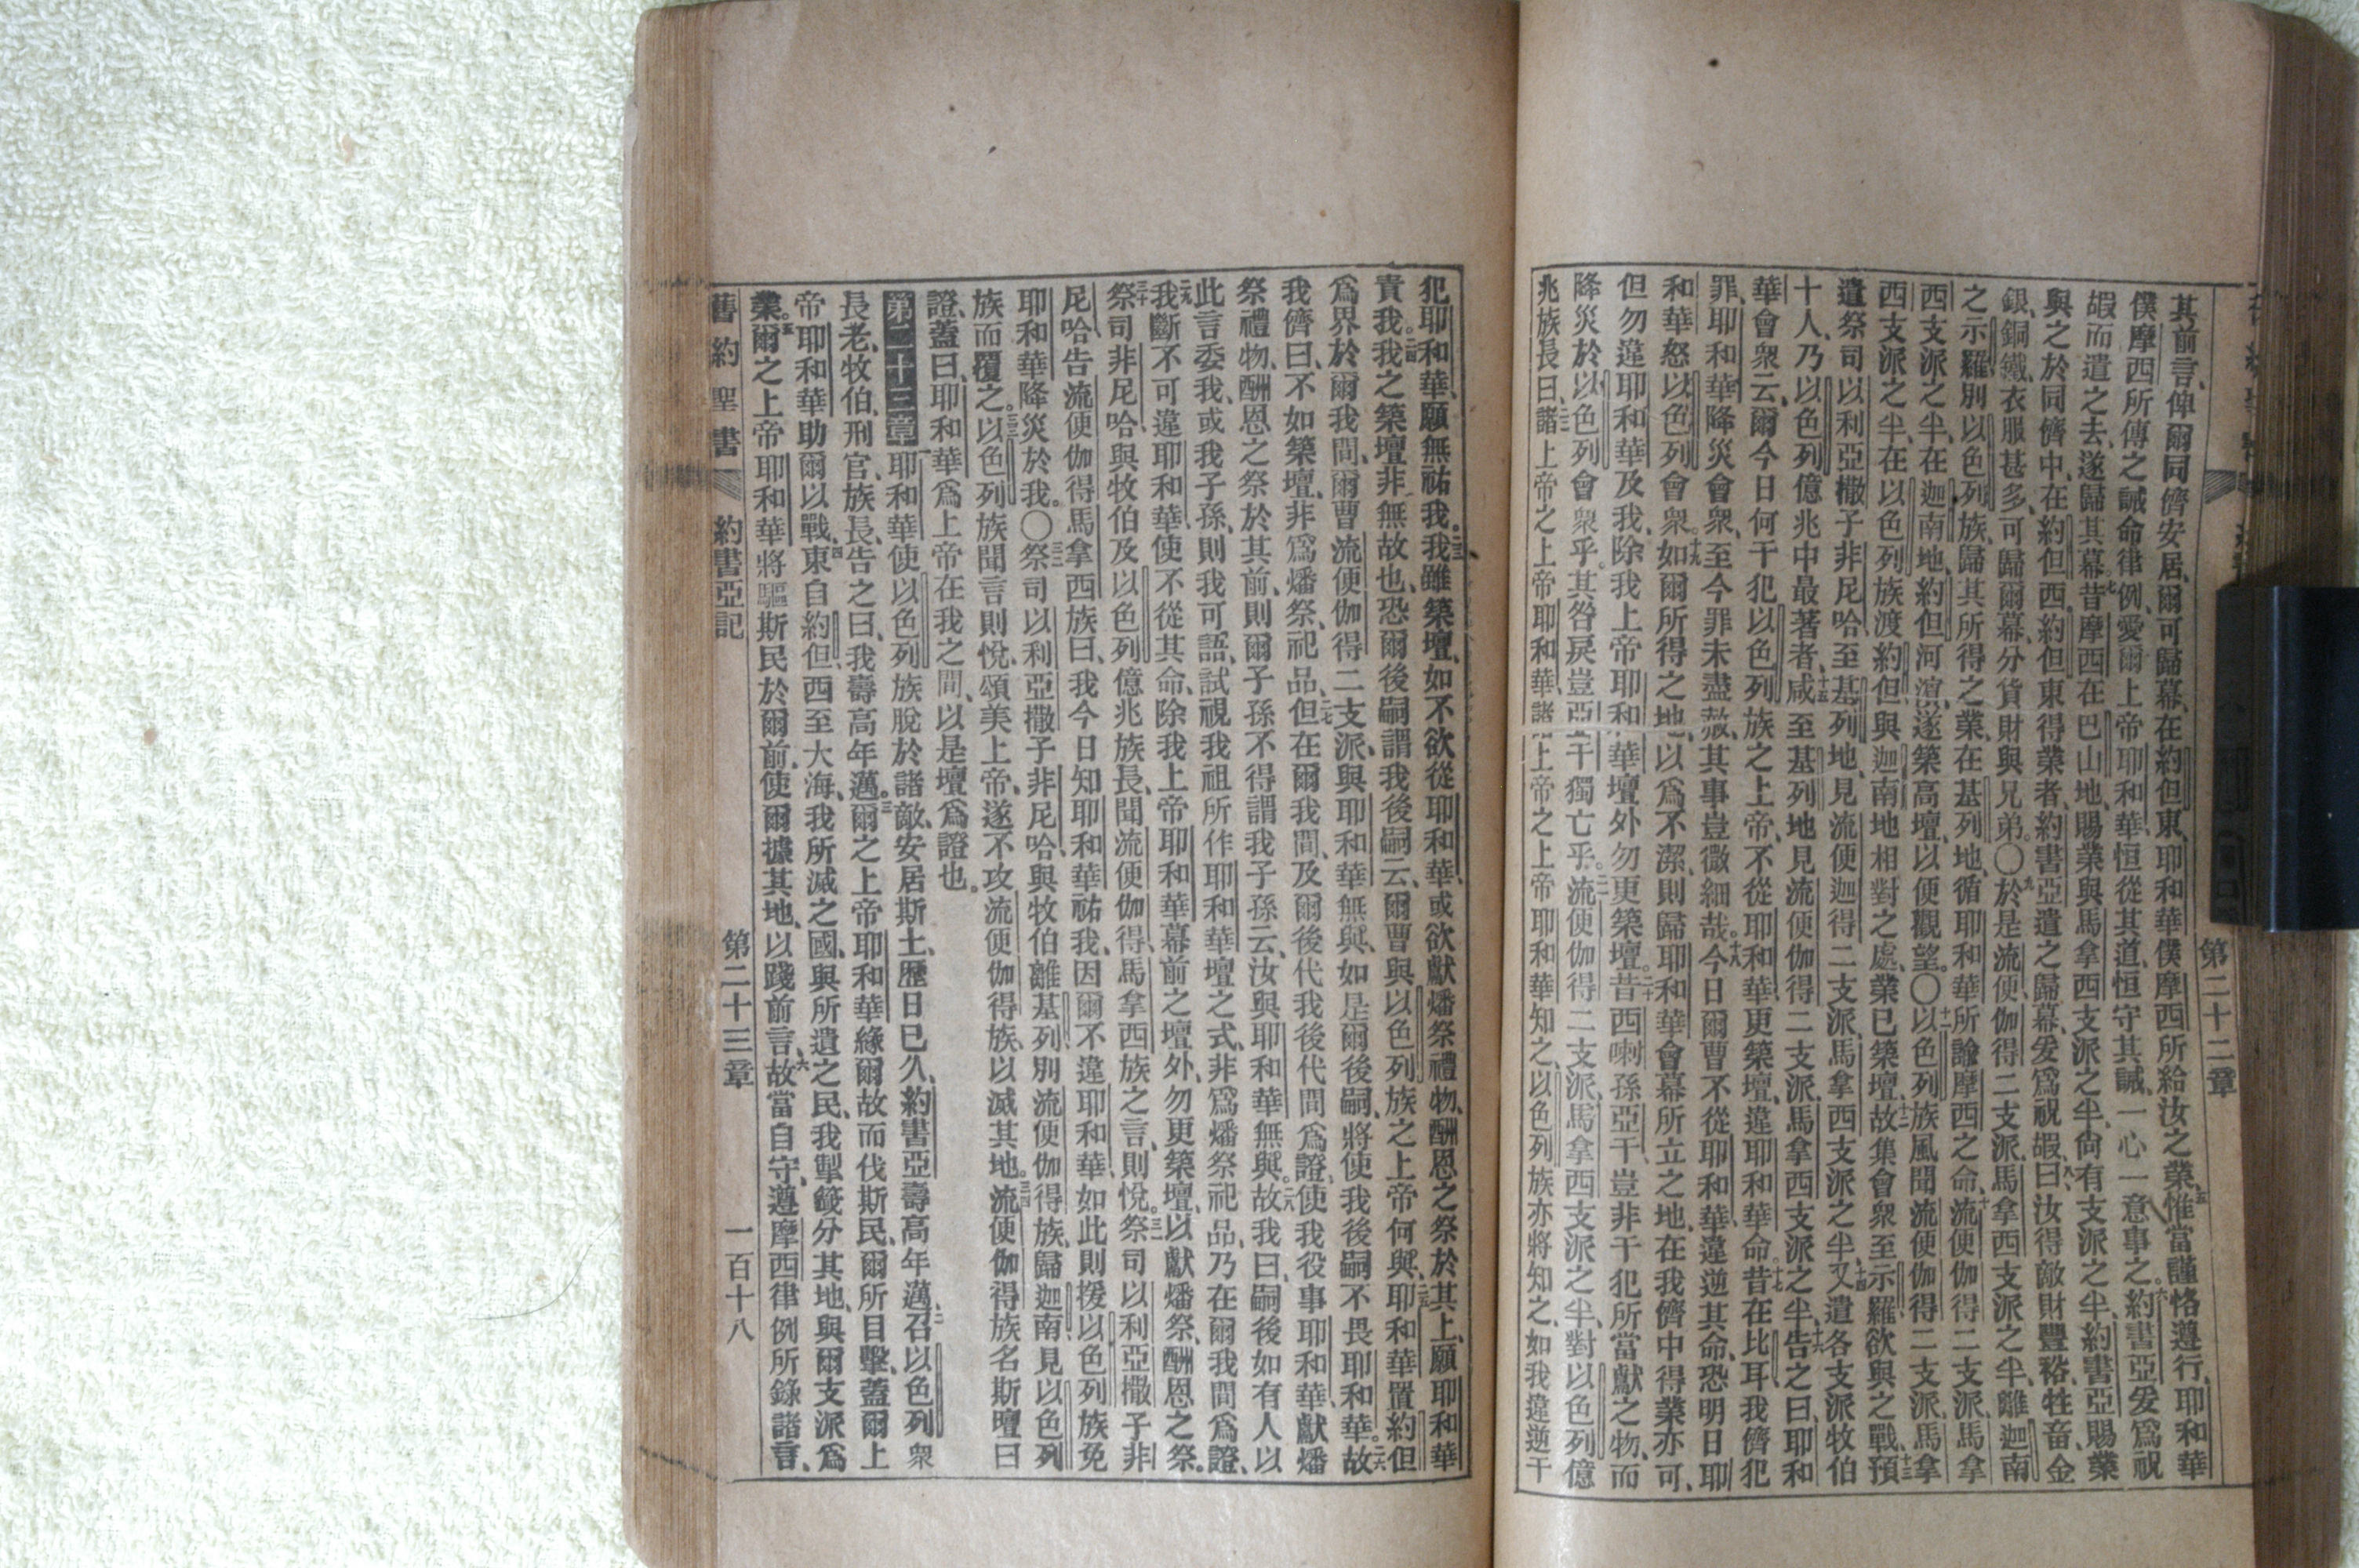 第二十二章
其前言、俾爾同儕安居、爾可歸幕、在約但東、耶和華僕摩西所給汝之業、五惟當謹恪遵行、耶和華
僕摩西所傳之誡命律例、愛爾上帝耶和華、恒從其道、恒守其誡、一心一意事之。六約書亞爰爲祝
嘏而遣之去、遂歸其幕。七昔摩西在巴山地、賜業與馬拿西支派之半、尙有支派之半、約書亞賜業
與之於同儕中、在約但西、約但東得業者、約書亞遣之歸幕、爰爲祝嘏、八曰、汝得敵財豐裕、牲畜、金
銀、銅鐵、衣服甚多、可歸爾幕、分貨財與兄弟。〇九於是流便、伽得二支派、馬拿西支派之半、離迦南
之示羅、別以色列族、歸其所得之業、在基列地、循耶和華所諭摩西之命、十流便、伽得二支派、馬拿
西支派之半、在迦南地、約但河濱、遂築高壇、以便觀望。〇十一以色列族風聞流便、伽得二支派、馬拿
西支派之半、在以色列族渡約但、與迦南地相對之處、業已築壇、十二故集會衆至示羅、欲與之戰、十三預
遣祭司以利亞撒子非尼哈、至基列地、見流便迦得二支派、馬拿西支派之半、十四又遣各支派牧伯
十人、乃以色列億兆中最著者、十五咸至基列地見流便伽得二支派、馬拿西支派之半、十六告之曰、耶和
華會衆云、爾今日何干犯以色列族之上帝、不從耶和華、更築壇、違耶和華命。十七昔在比耳、我儕犯
罪、耶和華降災會衆、至今罪未盡赦、其事豈微細哉。十八今日爾曹不從耶和華、違逆其命、恐明日耶
和華怒以色列會衆。十九如爾所得之地、以爲不潔、則歸耶和華會幕所立之地、在我儕中得業亦可、
但勿違耶和華及我、除我上帝耶和華壇外、勿更築壇。二十昔西喇孫亞干豈非干犯所當獻之物、而
降災於以色列會衆乎。其咎戾豈亞干獨亡乎。二一流便伽得二支派、馬拿西支派之半、對以色列億
兆族長曰、二二諸上帝之上帝耶和華、諸上帝之上帝耶和華知之、以色列族亦將知之、如我違逆干
犯耶和華、願無祐我。二三我雖築壇、如不欲從耶和華、或欲獻燔祭禮物、酬恩之祭於其上、願耶和華
責我。二四我之築壇、非無故也、恐爾後嗣謂我後嗣云、爾曹與以色列族之上帝何與、二五耶和華置約但
爲界於爾我間、爾曹流便伽得二支派、與耶和華無與、如是爾後嗣、將使我後嗣不畏耶和華。二六故
我儕曰、不如築壇、非爲燔祭、祀品、二七但在爾我間、及爾後代我後代間爲證、使我役事耶和華、獻燔
祭禮物、酬恩之祭於其前、則爾子孫不得謂我子孫云、汝與耶和華無與。二八故我曰、嗣後如有人以
此言委我、或我子孫、則我可語、試視我祖所作耶和華壇之式、非爲燔祭祀品、乃在爾我間爲證、
二九我斷不可違耶和華、使不從其命、除我上帝耶和華幕前之壇外、勿更築壇、以獻燔祭、酬恩之祭。
三十祭司非尼哈與牧伯及以色列億兆族長、聞流便伽得、馬拿西族之言、則悅。三一祭司以利亞撒子非
尼哈告流便伽得馬拿西族曰、我今日知耶和華祐我、因爾不違耶和華、如此則援以色列族免
耶和華降災於我。〇三二祭司以利亞撒子非尼哈、與牧伯離基列、別流便伽得族、歸迦南、見以色列
族而覆之。三三以色列族聞言則悅、頌美上帝、遂不攻流便伽得族、以滅其地。三四流便伽得族名斯壇曰
證、蓋曰、耶和華爲上帝在我之間、以是壇爲證也。
第二十三章 一耶和華使以色列族脫於諸敵、安居斯土、歷日已久、約書亞壽高年邁、二召以色列衆
長老、牧伯、刑官、族長、告之曰、我壽高年邁。三爾之上帝耶和華緣爾故而伐斯民、爾所目擊、蓋爾上
帝耶和華助爾以戰、四東自約但、西至大海、我所滅之國、與所遺之民、我掣籤分其地、與爾支派爲
業。五爾之上帝耶和華將驅斯民於爾前、使爾據其地、以踐前言、六故當自守、遵摩西律例所錄諸言、
舊約聖書 約書亞記 第二十三章 一百十八